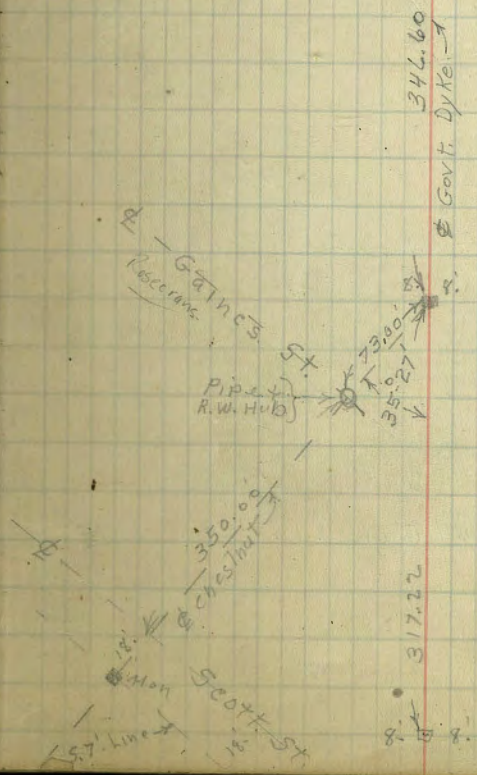 346.60
℄ Govt. Dyke.
℄ - Gaines St.
Rosecrans.
8'
8'
73.00'
35°-27'
Pipe &
R.W. Hub
350.00
℄ Chestnut
317.22
18'
Mon
Scott. St
18'
S.7' Line
8'
8'